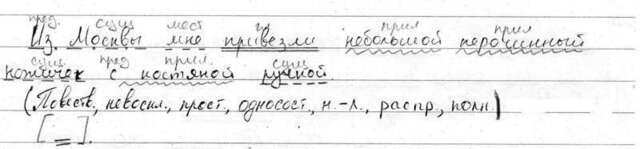 пред. сущ. мест. гл. прил. прил.
Из Москвы мне привезли небольшой перочинный
сущ. пред прил. сущ.
ножичек с костяной ручкой
(Повеств., невоскл., прост., односост., н.-л., распр., полн.)
[ = ].